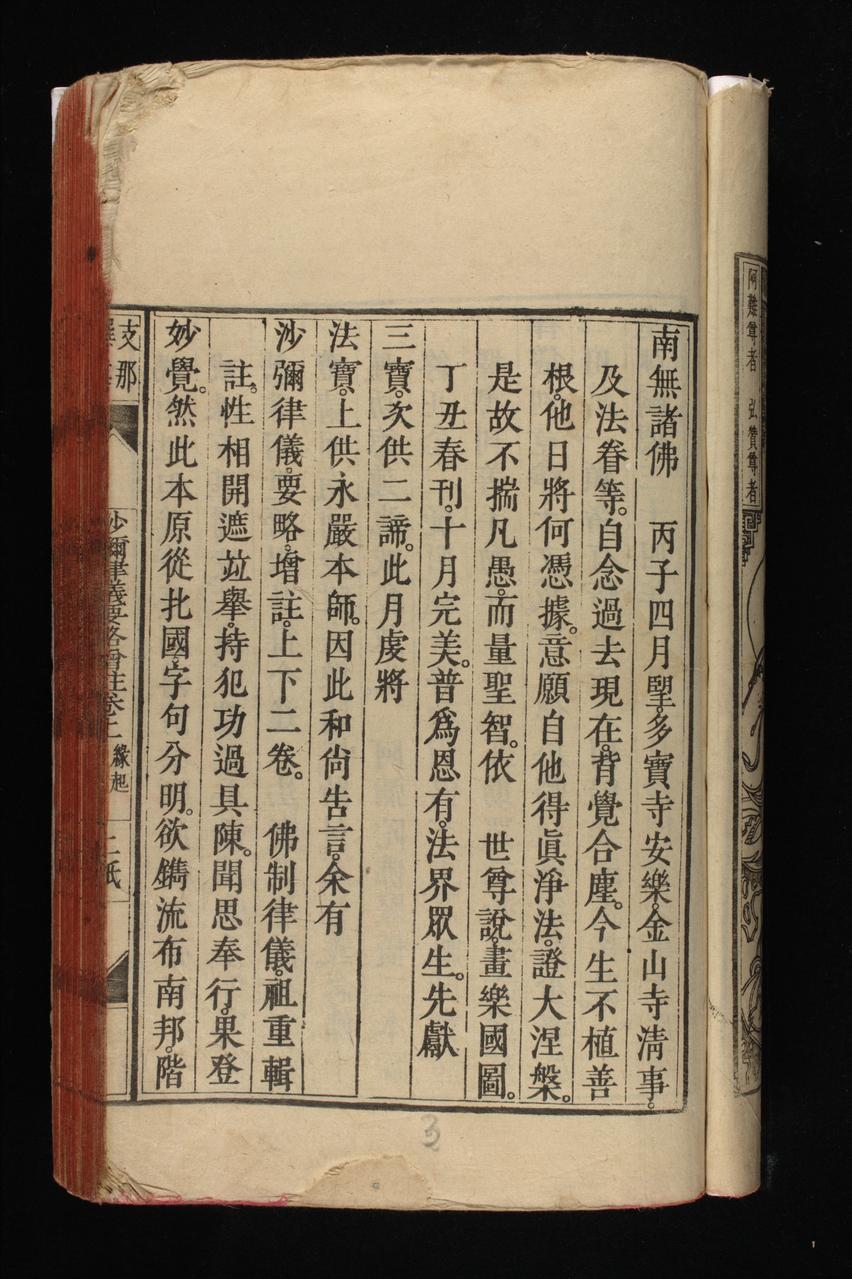 南無諸佛　丙子四月朢。多寶寺安樂。金山寺淸事。
及法眷等。自念過去現在。背覺合塵。今生不植善
根。他日將何憑據。意願自他得眞淨法。證大涅槃。
是故不揣凡愚。而量聖智。依　世尊說。畫樂國圖。
丁丑春刊。十月完美。普爲恩有。法界眾生。先獻
三寶。次供二諦。此月䖍將
法寶。上供永嚴本師。因此和尙吿言。余有
沙彌律儀。要略。增註。上下二卷。　佛制律儀。祖重輯
註。性相開遮竝舉。持犯功過具陳。聞思奉行。果登
妙覺。然此本原從北國。字句分明。欲鐫流布南邦。階
支那
沙彌律儀要略增註卷上　緣起
二紙
阿難尊者　弘贊尊者
3